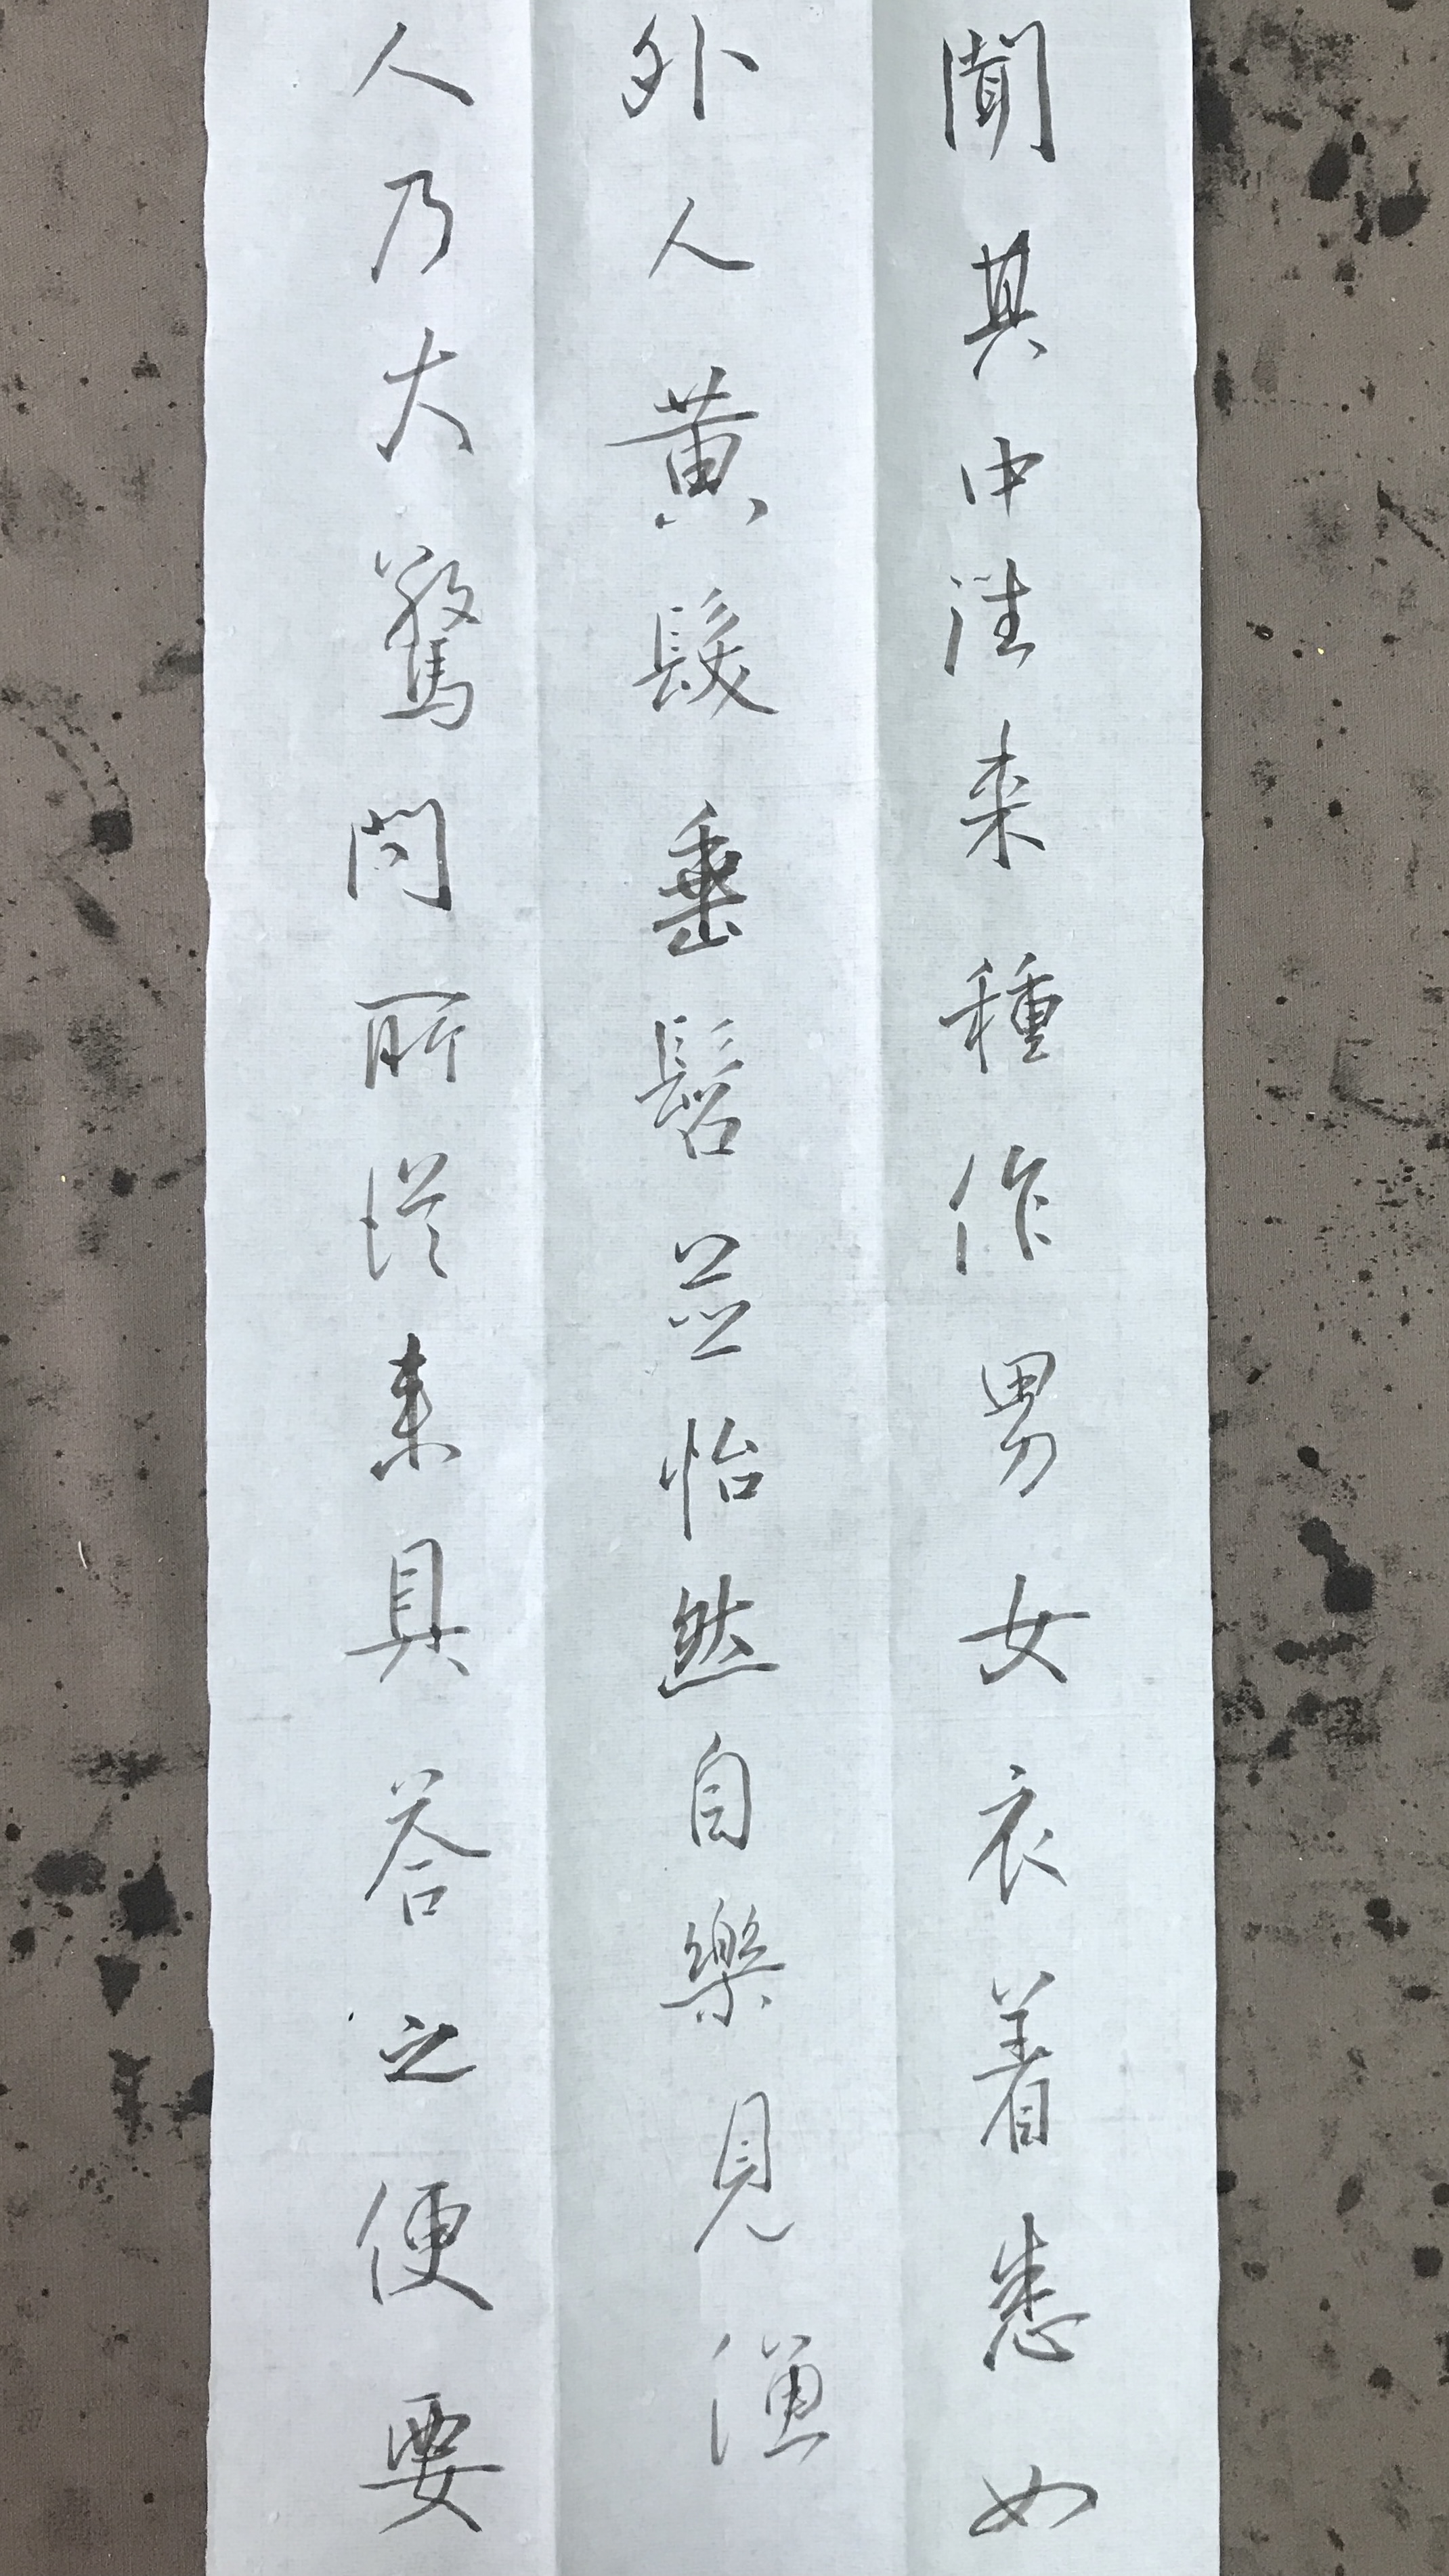 聞其中往来種作男女衣着悉如
外人黄髮垂髫並怡然自樂見漁
人乃大驚問所從来具答之便要